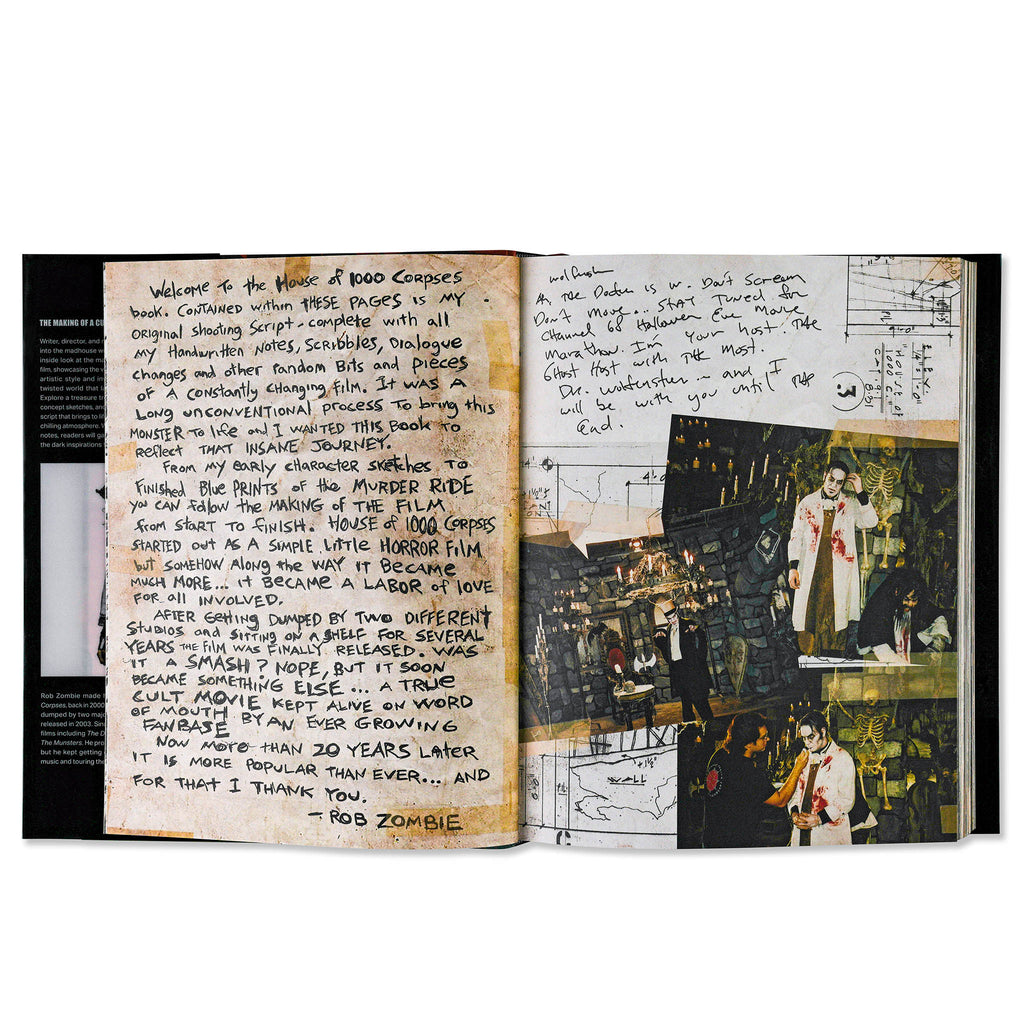 THE MAKING OF A CU
Writer, director, and
into the madhouse w
inside look at the ma
film, showcasing the v
artistic style and in
twisted world that
Explore a treasure
concept sketches, and
script that brings to li
chilling atmosphere.
notes, readers will ga
the dark inspirations
Rob Zombie made
Corpses, back in 2000
dumped by two majo
released in 2003. Sin
films including The D
The Munsters. He pro
but he kept getting
music and touring the
Welcome To the House of 1000 Corpses
book. Contained within THESE PAGES is my
original shooting Script - complete with all
my Handwritten Notes, Scribbles, Dialogue
changes and other random Bits and pieces
of a constantly changing film. It was a
Long unconventional process to bring this
MONSTER To life and I WANTED THIS BOOK TO
reflect THAT INSANE JOURNEY.
From my early character sketches to
finished Blue PRINTS of the MURDER RIDE
you can follow the MAKING OF THE FILM
from START TO FINISH. HOUSE of 1000 CORPSES
STARTED OUT AS A SIMPLE Little HORROR FILM
but SOMEHOW Along the WAY IT BECAME
MUCH MORE... IT BECAME A LABOR of LOVE
FOR all INVOLVED.
AFTER GETTING DUMPED BY TWO DIFFERENT
STUDIOS and SITTING ON A SHELF FOR SEVERAL
YEARS THE FILM WAS FINALLY RELEASED. WAS
IT A SMASH? NOPE, BUT IT SOON
BECAME SOMETHING ELSE... A TRUE
CULT MOVIE KEPT ALIVE ON WORD
OF MOUTH BY AN EVER GROWING
FANBASE
NOW MORE THAN 20 YEARS LATER
IT IS MORE POPULAR THAN EVER... AND
FOR THAT I THANK YOU.
- ROB ZOMBIE
Ah, The Doctor is in. Don't Scream
Don't Move... STAY Tuned for
Channel 68 Halloween Eve Movie
Marathon. I'm your host. The
Ghost Host with THE Most.
Dr. Wolfenstein - and I
will be with you until THE
End.
"HOUSE OF
1000 C."
3
4'-0"
WALL